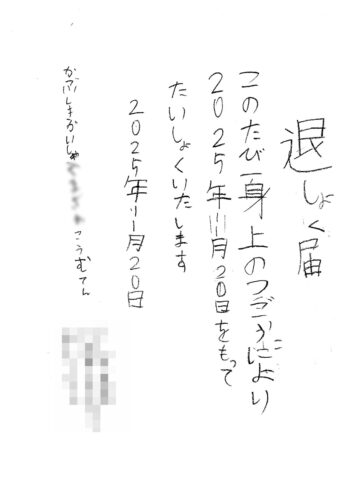 退しょく届
このたび一身上のつごうにより
2025年11月20日をもって
たいしょくいたします
2025年11月20日
かぶしきがいしゃ
こうむてん